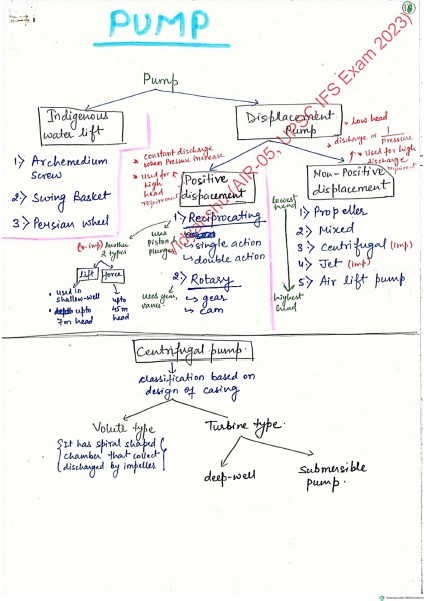 PUMP
Pump
Indigenous
water lift
Displacement
Pump
* low head
* discharge α 1/Pressure
* Used for high
discharge requirement
* constant discharge
when Pressure increase
* used for
high
head
requirement
1> Archemedium
screw
2> Swing Basket
3> Persian wheel
Positive
displacement
Non-Positive
displacement
1> Reciprocating
↳ single action
↳ double action
uses
Piston &
Plunger
2> Rotary
↳ gear
↳ cam
uses gear,
vanes
(v. imp) Another
2 types
lift
force
• used in
shallow-well
• upto
7m head
upto
45m
head
lowest
head
highest
head
1> Propeller
2> Mixed
3> Centrifugal (imp)
4> Jet (imp)
5> Air lift pump
(AIR-05, UPSC IFS Exam 2023)
Centrifugal pump.
classification based on
design of casing
Volute type
{It has spiral shaped
chamber that collect
discharged by impeller}
Turbine type.
deep-well
Submersible
pump.